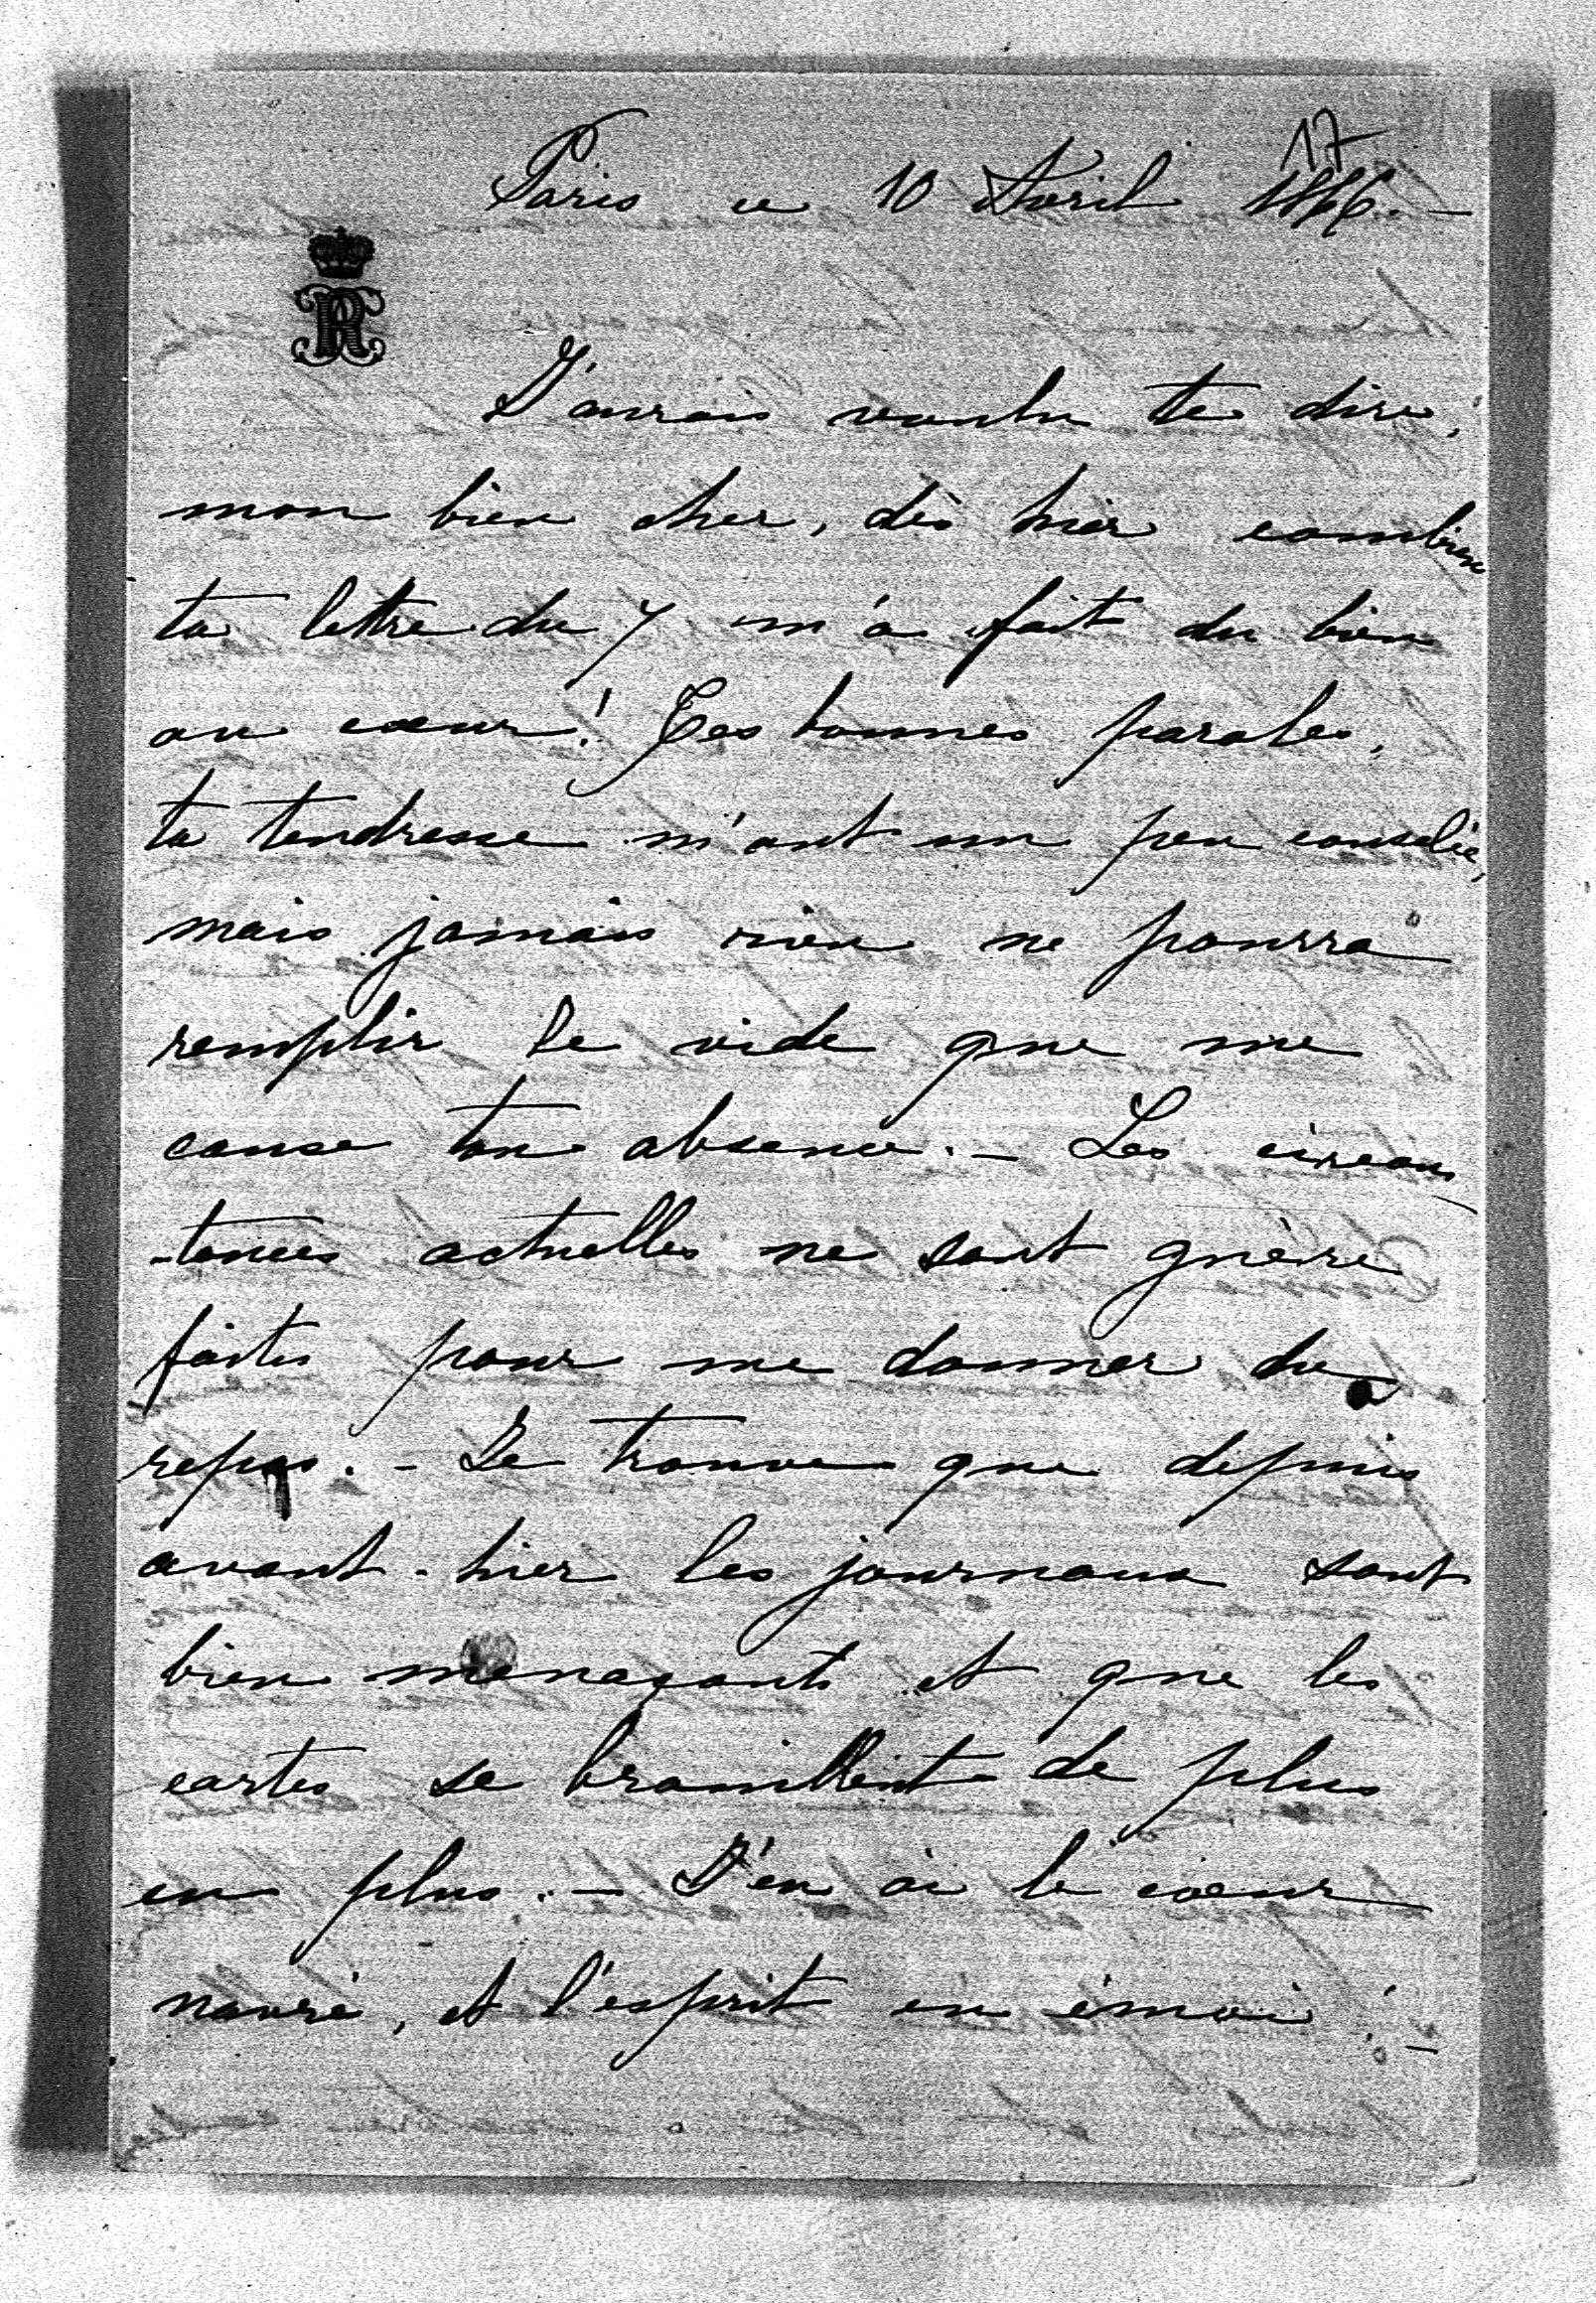 17
Paris ce 10 Avril
R
J'aurais voulu te dire,
mon bien cher, dès hier combien
ta lettre du 7 m'a fait du bien
au cœur! Tes bonnes paroles,
ta tendresse m'ont un peu consolée,
mais jamais rien ne pourra
remplir le vide que me
cause ton absence. - Les circons
-tances actuelles ne sont guère
faites pour me donner du
repos. - Je trouve que depuis
avant-hier les journaux sont
bien menaçants et que les
cartes se brouillent de plus
en plus. - J'en ai le cœur
navré, et l'esprit en émoi! -